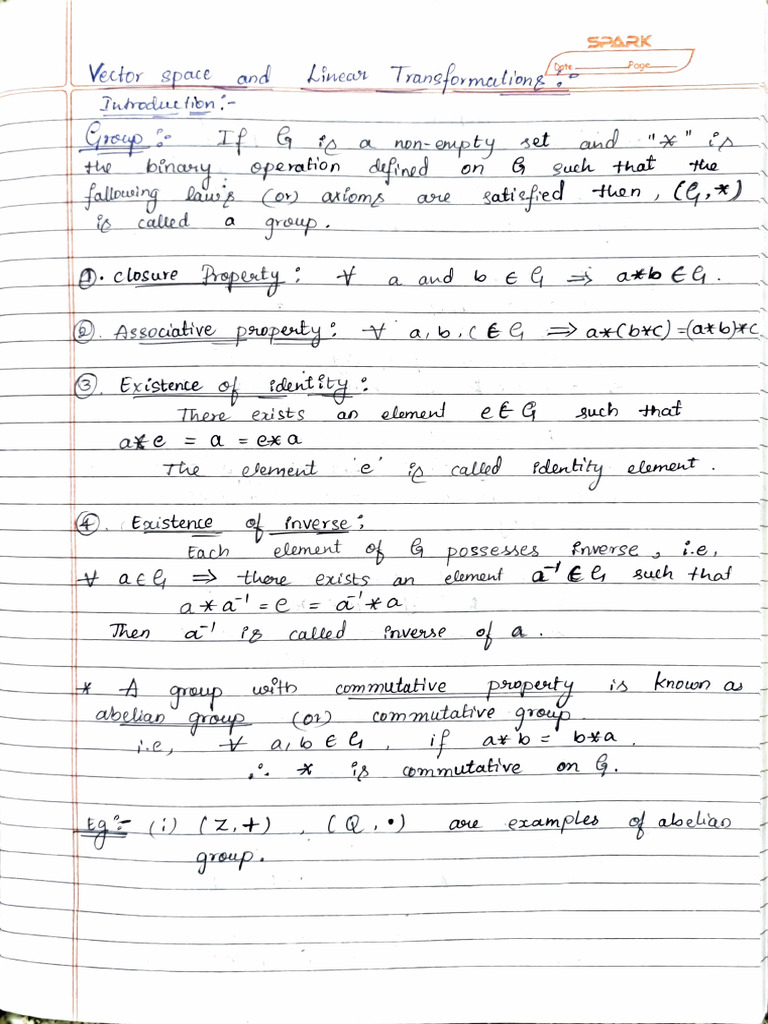 SPARK
Date Page
Vector space and Linear Transformations:-
Introduction:-
Group:- If G is a non-empty set and "*" is
the binary operation defined on G such that the
following law's (or) axioms are satisfied then, (G,*)
is called a group.
①. closure Property: ∀ a and b ∈ G ⇒ a*b ∈ G.
②. Associative property: ∀ a, b, c ∈ G ⇒ a*(b*c)=(a*b)*c
③ Existence of identity:
There exists an element e∈G such that
a*e = a = e*a
The element 'e' is called identity element.
④. Existence of inverse:
Each element of G possesses inverse, i.e,
∀ a∈G ⇒ there exists an element a⁻¹∈G such that
a*a⁻¹ = e = a⁻¹*a
Then a⁻¹ is called inverse of a.
* A group with commutative property is known as
abelian group (or) commutative group.
i.e, ∀ a,b ∈ G, if a*b = b*a.
∴ * is commutative on G.
Eg:- (i) (Z,+), (Q,•) are examples of abelian
group.